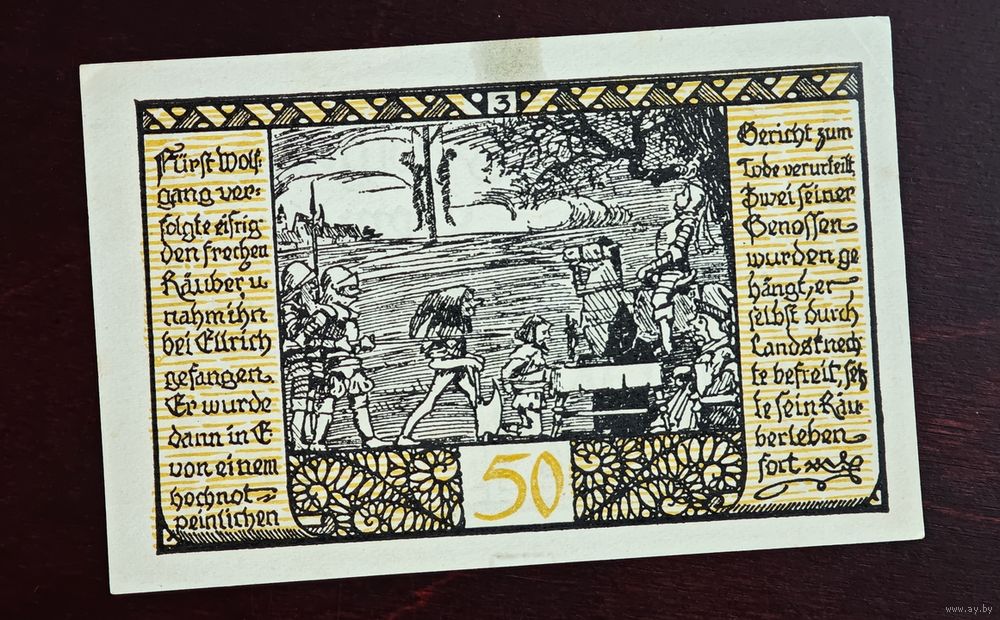 3
Fürst Wolf-
gang ver-
folgte eifrig
den frechen
Räuber, u
nahm ihn
bei Ellrich
gefangen.
Er wurde
dann in E
von einem
hochnot-
peinlichen
Gericht zum
Tode verurteilt
Zwei seiner
Genossen
wurden ge
hängt, er
selbst durch
Landsknech
te befreit, setz
te sein Räu-
berleben
fort
50
www.ay.by